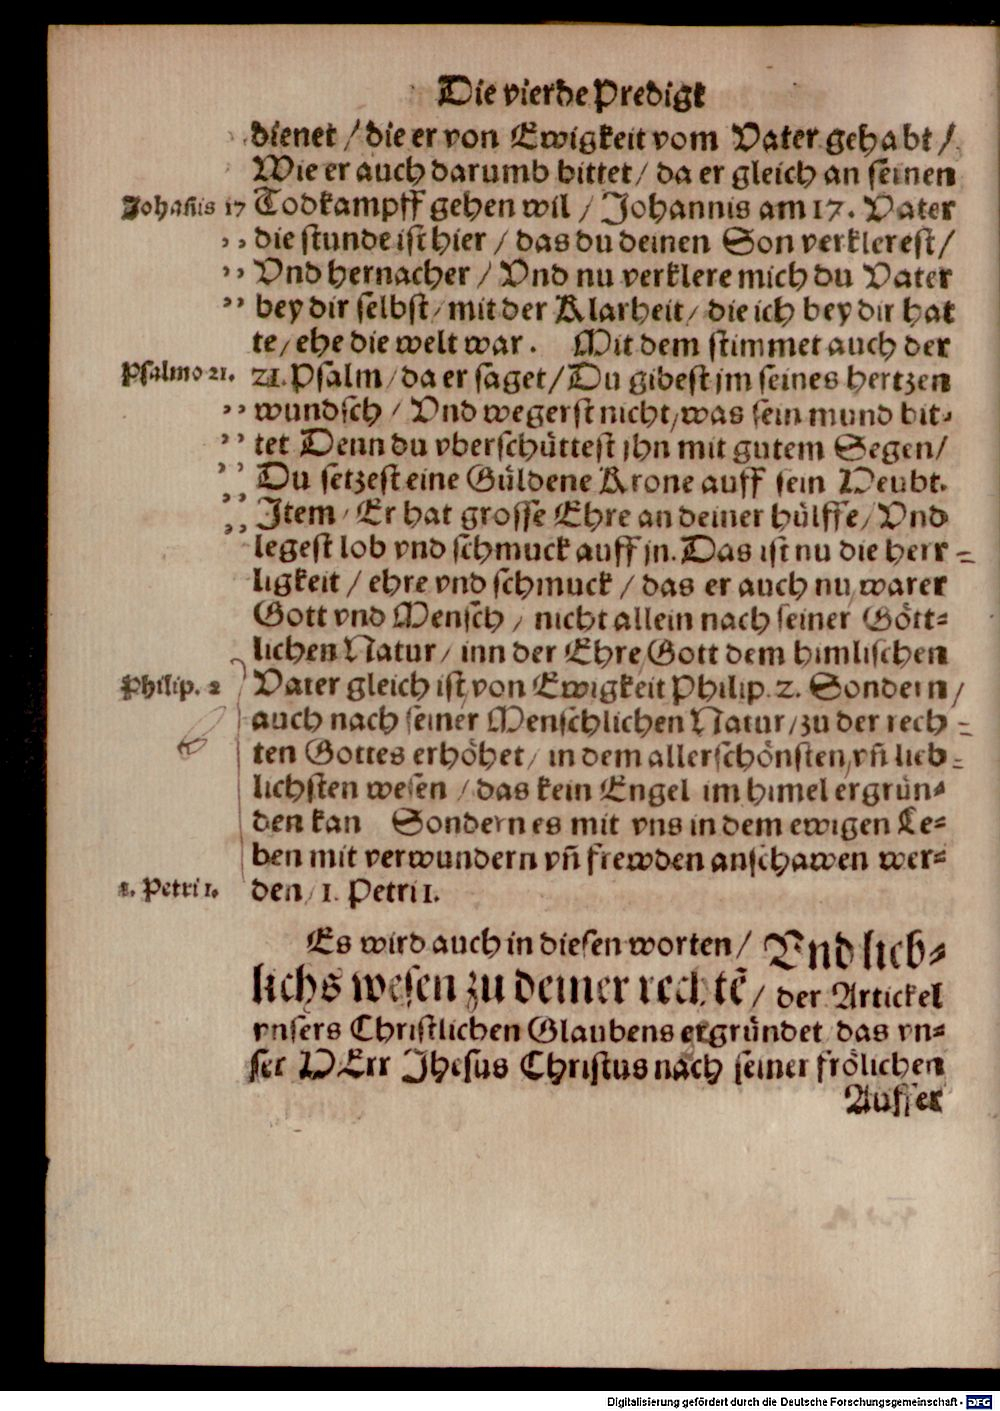 Die vierde Predigt
dienet / die er von Ewigkeit vom Vater gehabt /
Wie er auch darumb bittet / da er gleich an seinen
Johañis 17 Todkampff gehen wil / Johannis am 17. Vater
,, die stunde ist hier / das du deinen Son verklerest /
,, Vnd hernacher / Vnd nu verklere mich du Vater
,, bey dir selbst / mit der Klarheit / die ich bey dir hat
te / ehe die welt war. Mit dem stimmet auch der
Psalmo 21. 21. Psalm / da er saget / Du gibest jm seines hertzen
,, wundsch / Vnd wegerst nicht / was sein mund bit-
,, tet Denn du vberschüttest jhn mit gutem Segen /
,, Du setzest eine Güldene Krone auff sein Heubt.
,, Item / Er hat grosse Ehre an deiner hülffe / Vnd
,, legest lob vnd schmuck auff jn. Das ist nu die herr=
ligkeit / ehre vnd schmuck / das er auch nu / warer
Gott vnd Mensch / nicht allein nach seiner Gött=
lichen Natur / inn der Ehre / Gott dem himlischen
Philip. 2 Vater gleich ist / von Ewigkeit Philip. 2. Sondern /
auch nach seiner Menschlichen Natur / zu der rech=
ten Gottes erhöhet / in dem allerschönsten / vñ lieb=
lichsten wesen / das kein Engel im himel ergrün=
den kan Sondern es mit vns in dem ewigen Le=
ben mit verwundern vñ frewden anschawen wer=
1. Petri 1. den / 1. Petri 1.
Es wird auch in diesen worten / Vnd lieb=
lichs wesen zu deiner rechtẽ / der Artickel
vnsers Christlichen Glaubens ergründet das vn=
ser HErr Jhesus Christus nach seiner frölichen
Auffer
Digitalisierung gefördert durch die Deutsche Forschungsgemeinschaft - DFG